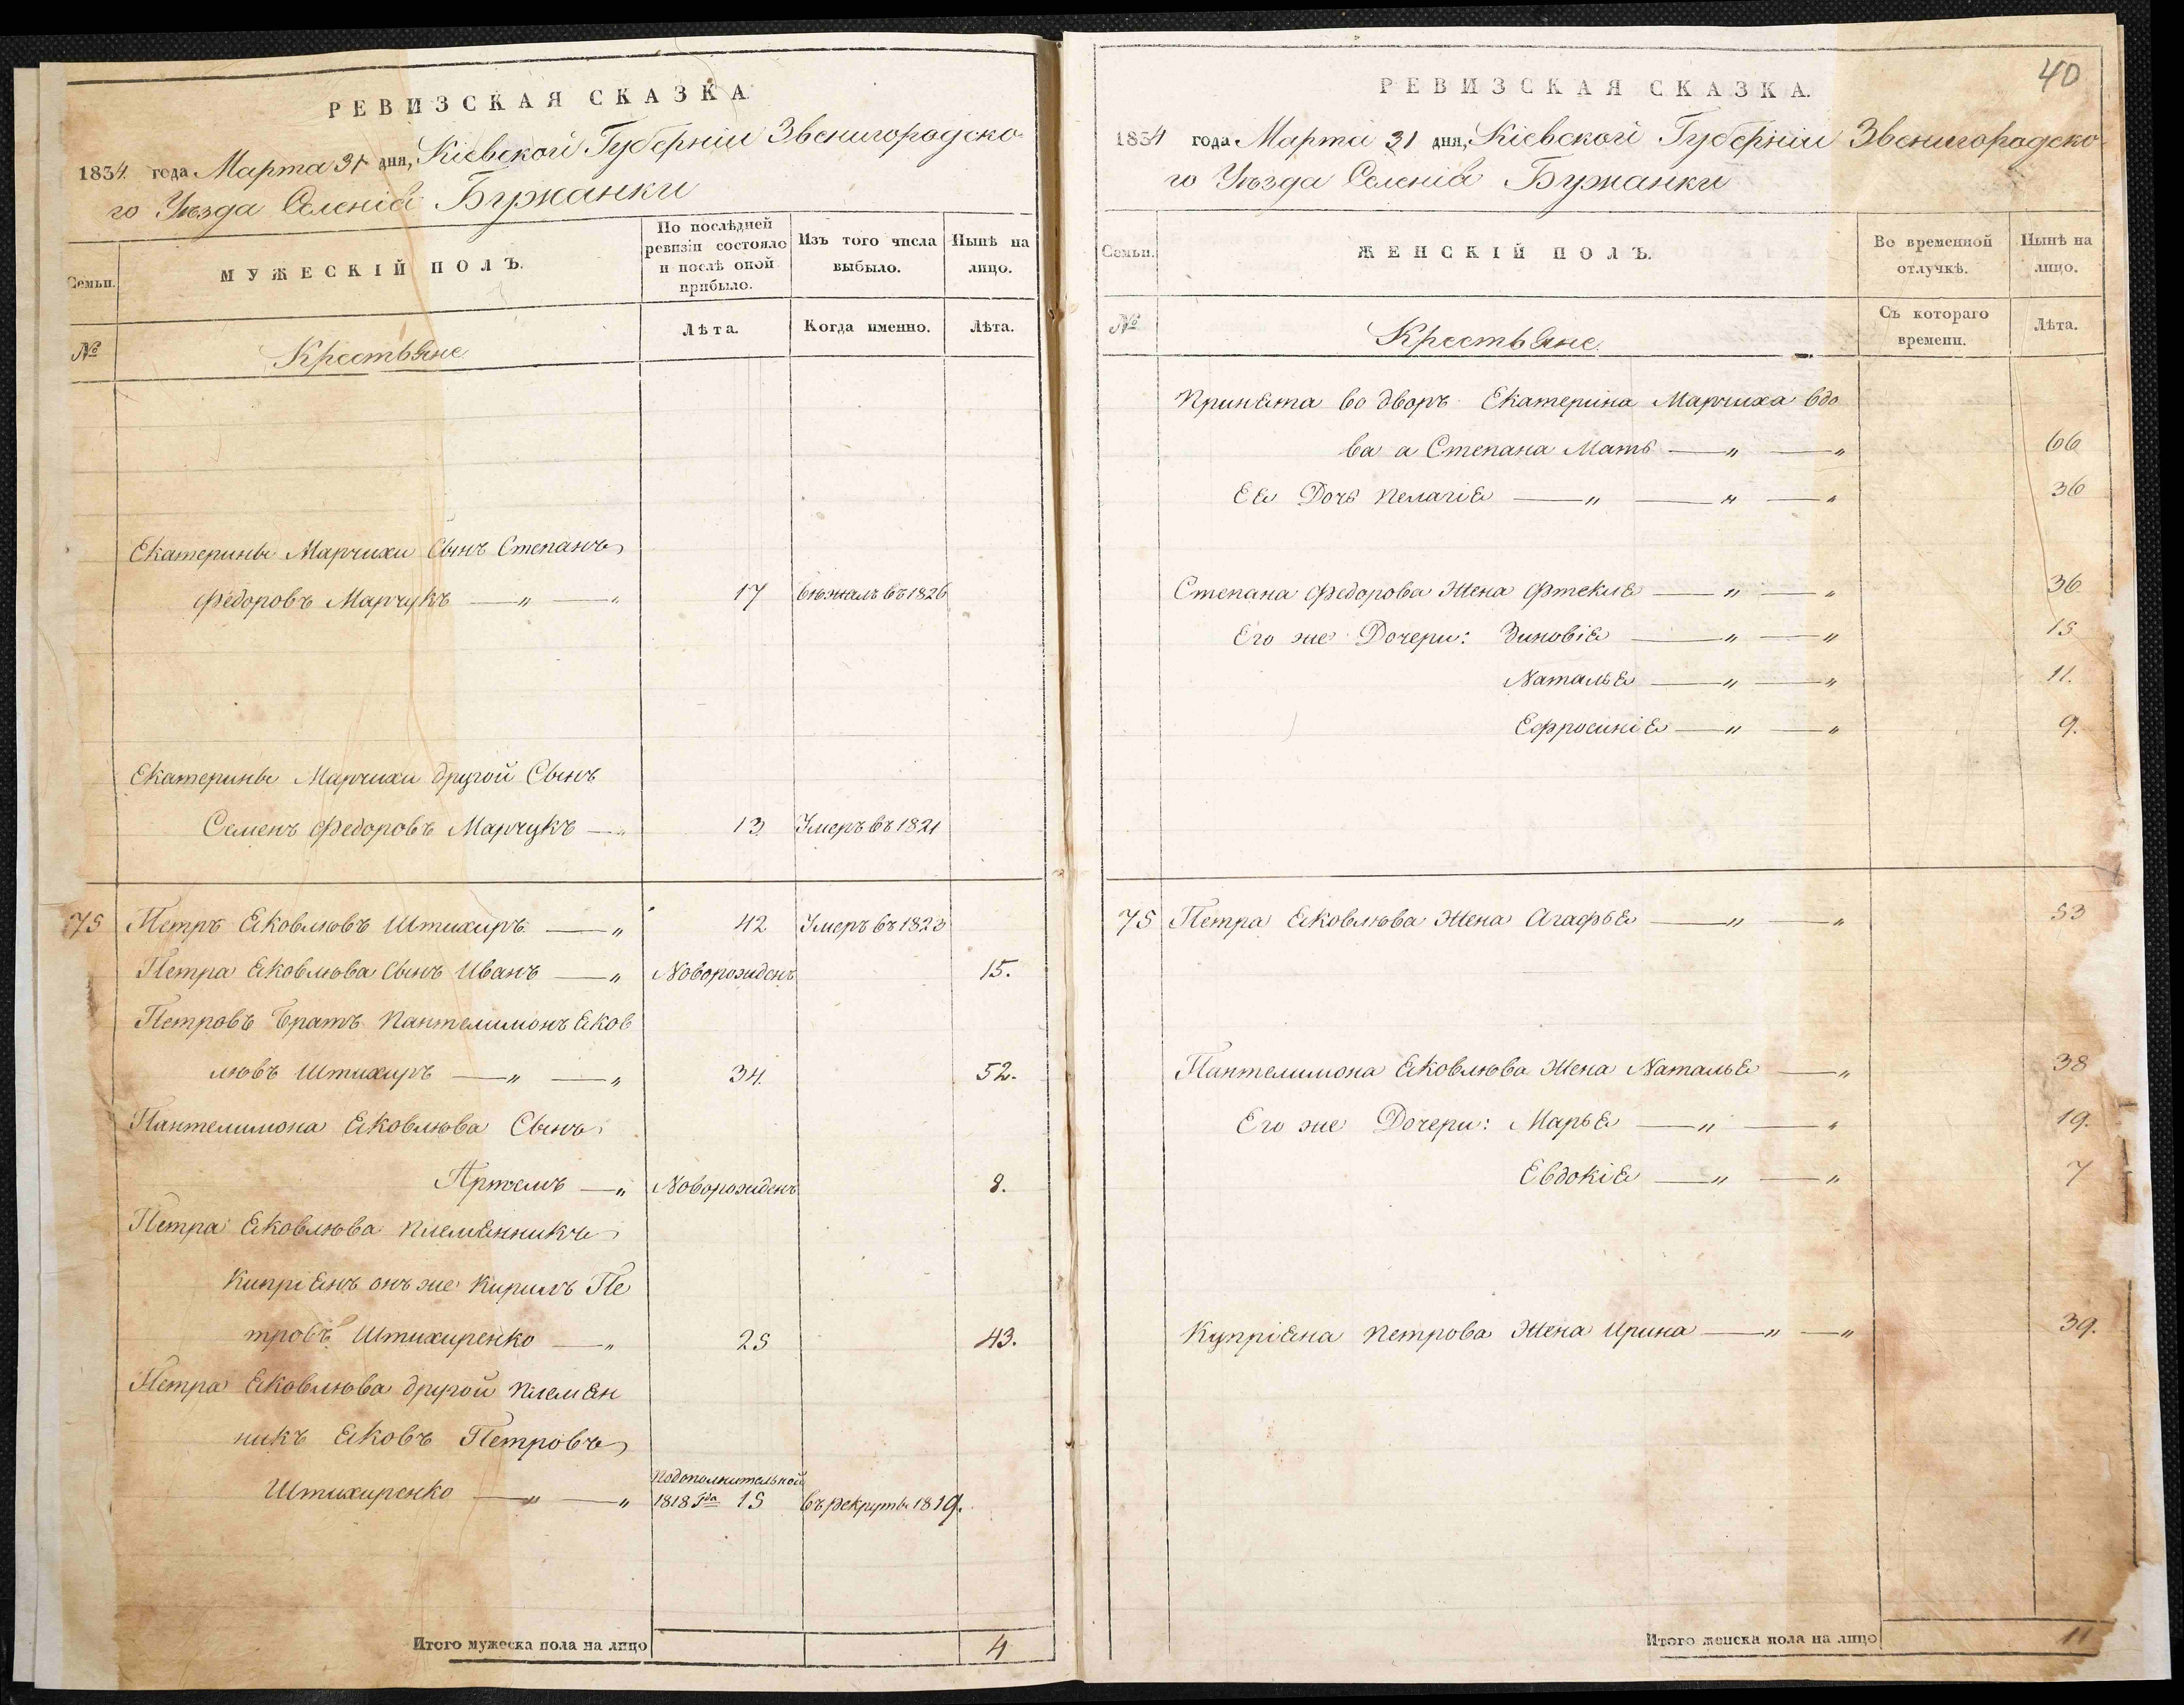 РЕВИЗСКАЯ СКАЗКА
1834 года Марта 31 дня, Кіевской Губерніи Звенигородско-
го Уѣзда Селенія Бужанки
Семьи.
МУЖЕСКІЙ ПОЛЪ.
По послѣдней
ревизіи состояло
и послѣ оной
прибыло.
Изъ того числа
выбыло.
Нынѣ на
лицо.
№
Крестьяне
Лѣта.
Когда именно.
Лѣта.
Екатерины Марчихи Сынъ Степанъ
Федоровъ Марчукъ — „ — „ 17 бѣжалъ въ 1826
Екатерины Марчихи другой Сынъ
Семенъ Федоровъ Марчукъ — „ 13 Умеръ въ 1821
75 Петръ Яковлювъ Штихиръ — „ 42 Умеръ въ 1823
Петра Яковлюва Сынъ Иванъ — „ Новорожденъ 15.
Петровъ братъ Пантелимонъ Яков
лювъ Штихиръ — „ — „ 34. 52.
Пантелимона Яковлюва Сынъ
Артемъ — „ Новорожденъ 8.
Петра Яковлюва племянникъ
Кипріянъ онъ же Кирилъ Пе
тровъ Штихиренко — „ 25 43.
Петра Яковлюва другой племян
никъ Яковъ Петровъ
Штихиренко — „ — „ подополнительной 1818 Года 15 въ рекруты 1819.
Итого мужеска пола на лицо 4
40
РЕВИЗСКАЯ СКАЗКА.
1834 года Марта 31 дня, Кіевской Губерніи Звенигородско-
го Уѣзда Селенія Бужанки
Семьи.
ЖЕНСКІЙ ПОЛЪ.
Во временной
отлучкѣ.
Нынѣ на
лицо.
№
Крестьяне
Съ котораго
времени.
Лѣта.
Принята во дворъ Екатерина Марчиха вдо
ва а Степана Мать — „ — „ 66
Ея Дочь Пелагія — „ — „ — „ 36
Степана Федорова Жена Фтекля — „ — „ 36
Его же Дочери: Зиновія — „ — „ 15
Наталья — „ — „ 11.
Ефросинія — „ — „ 9.
75 Петра Яковлюва Жена Агафья — „ — „ 53
Пантелимона Яковлюва Жена Наталья — „ 38
Его же Дочери: Марья — „ — „ 19.
Евдокія — „ — „ 7
Купріяна Петрова Жена Ирина — „ — „ 39.
Итого женска пола на лицо 11